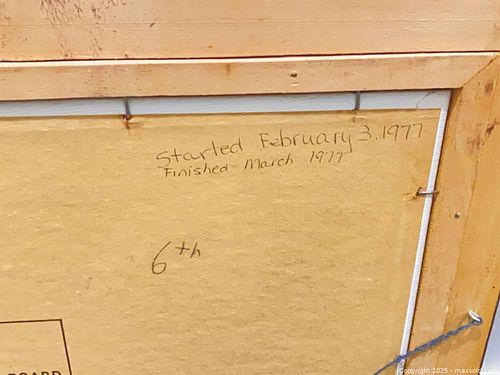 Started February 3.1977
Finished March 1977
6th
BOARD
Copyright 2025 - maxsold.com